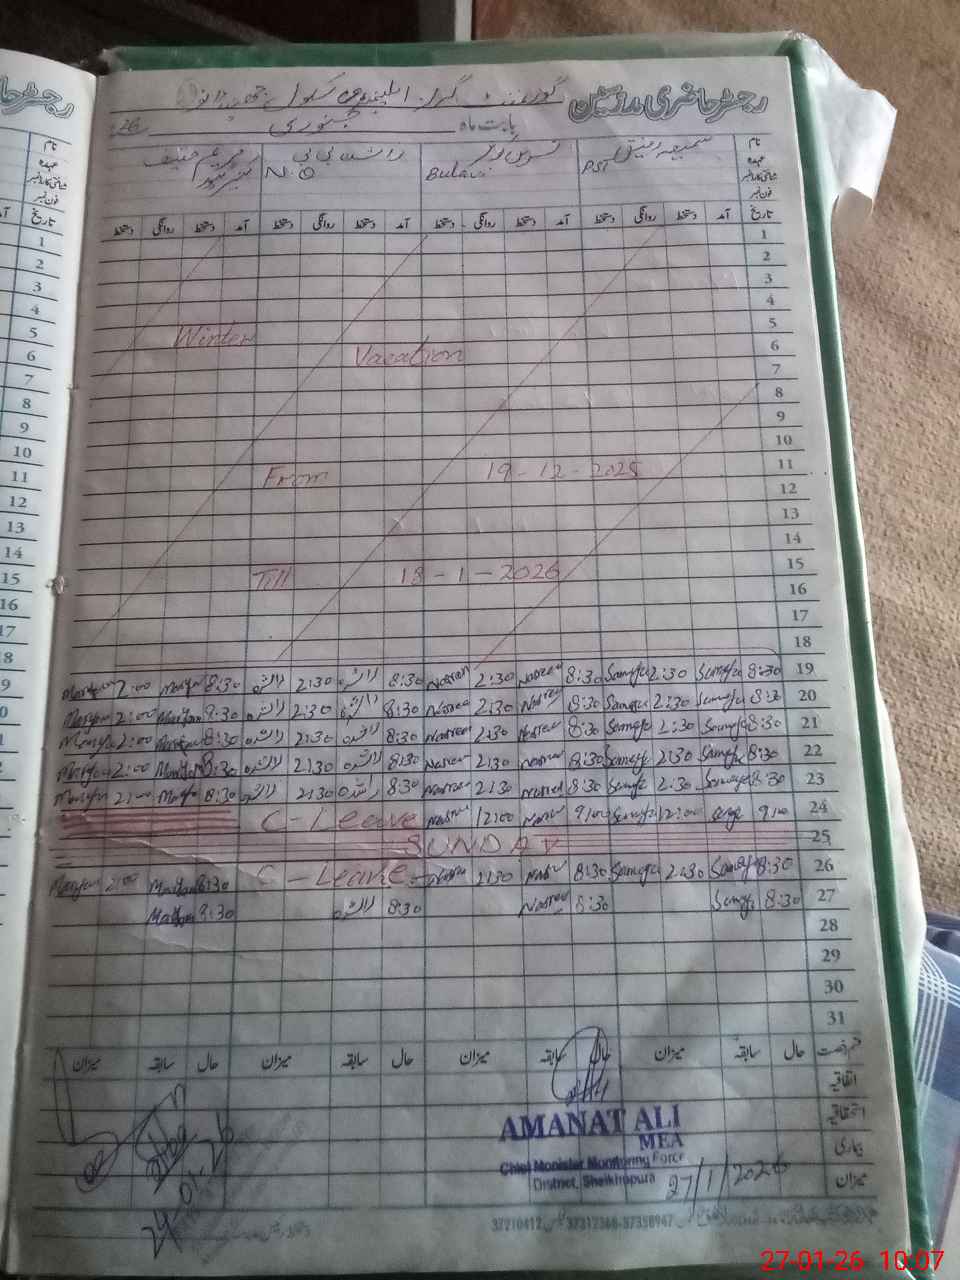 رجسٹر حاضری مدرسین گورنمنٹ گرلز ایلیمنٹری سکول
بابت ماہ جنوری 26
نام
عہدہ
شناختی کارڈ نمبر
فون نمبر
PST
Bulavi
راشدہ بی بی
N.Q
مریم حنیف
تاریخ آمد دستخط روانگی دستخط آمد دستخط روانگی دستخط آمد دستخط روانگی دستخط آمد دستخط روانگی دستخط
1
2
3
4
5
Winter
6
Vacation
7
8
9
10
11
From 19-12-2025
12
13
14
15
Till 18-1-2026
16
17
18
19 8:30 2:30 Nasreen 8:30 2:30 Nasreen 8:30 راشدہ 2:30 راشدہ 8:30 Maryam 2:00 Maryam
20 8:30 2:30 8:30 Nasreen 2:30 Nasreen 8:30 راشدہ 2:30 راشدہ 8:30 Maryam 2:00 Maryam
21 8:30 2:30 8:30 Nasreen 2:30 Nasreen 8:30 راشدہ 2:30 راشدہ 8:30 Maryam 2:00 Maryam
22 8:30 2:30 8:30 Nasreen 2:30 Nasreen 8:30 راشدہ 2:30 راشدہ 8:30 Maryam 2:00 Maryam
23 8:30 2:30 8:30 Nasreen 2:30 Nasreen 8:30 راشدہ 2:30 راشدہ 8:30 Maryam 2:00 Maryam
24 9:00 12:00 9:00 12:00 C-Leave
25 SUNDAY
26 8:30 2:30 8:30 2:30 C-Leave 8:30 Maryam 2:00 Maryam
27 8:30 8:30 Nasreen 8:30 راشدہ 8:30 Maryam
28
29
30
31
قسم رخصت حال سابقہ میزان حال سابقہ میزان حال سابقہ میزان حال سابقہ میزان
اتفاقیہ
استحقاقیہ
بیماری
میزان
AMANAT ALI
MEA
Chief Monister Monitoring Force
District, Sheikhupura
27/1/2026
24-01-26
37210412 37312368-37358947
27-01-26 10:07